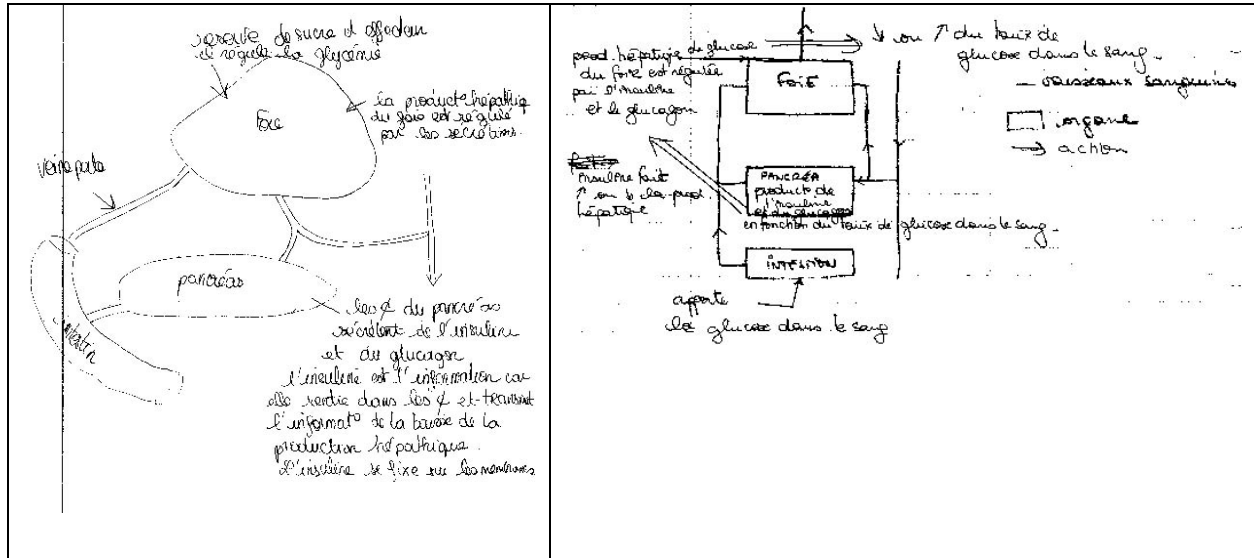 réserve de sucre et effecteur
il régule la glycémie
foie
la product° hépathique
du foie est régulé
par les secrétions.
veine porte
pancréas
intestin
les ¢ du pancréas
secrètent de l'insuline
et du glucagon
l'insuline est l'information car
elle rentre dans les ¢ et transmet
l'informat° de la baisse de la
production hépathique.
L'insuline se fixe sur les membranes
prod. hépatique de glucose
du foie est régulée
par l'insuline
et le glucagon
FOIE
↓ ou ↑ du taux de
glucose dans le sang.
— vaisseaux sanguins
organe
→ action
insuline fait
↑ ou ↓ la prod.
hépatique
PANCRÉA
product° de
l'insuline
et du glucagon
en fonction du taux de glucose dans le sang.
INTESTION
apporte
le glucose dans le sang